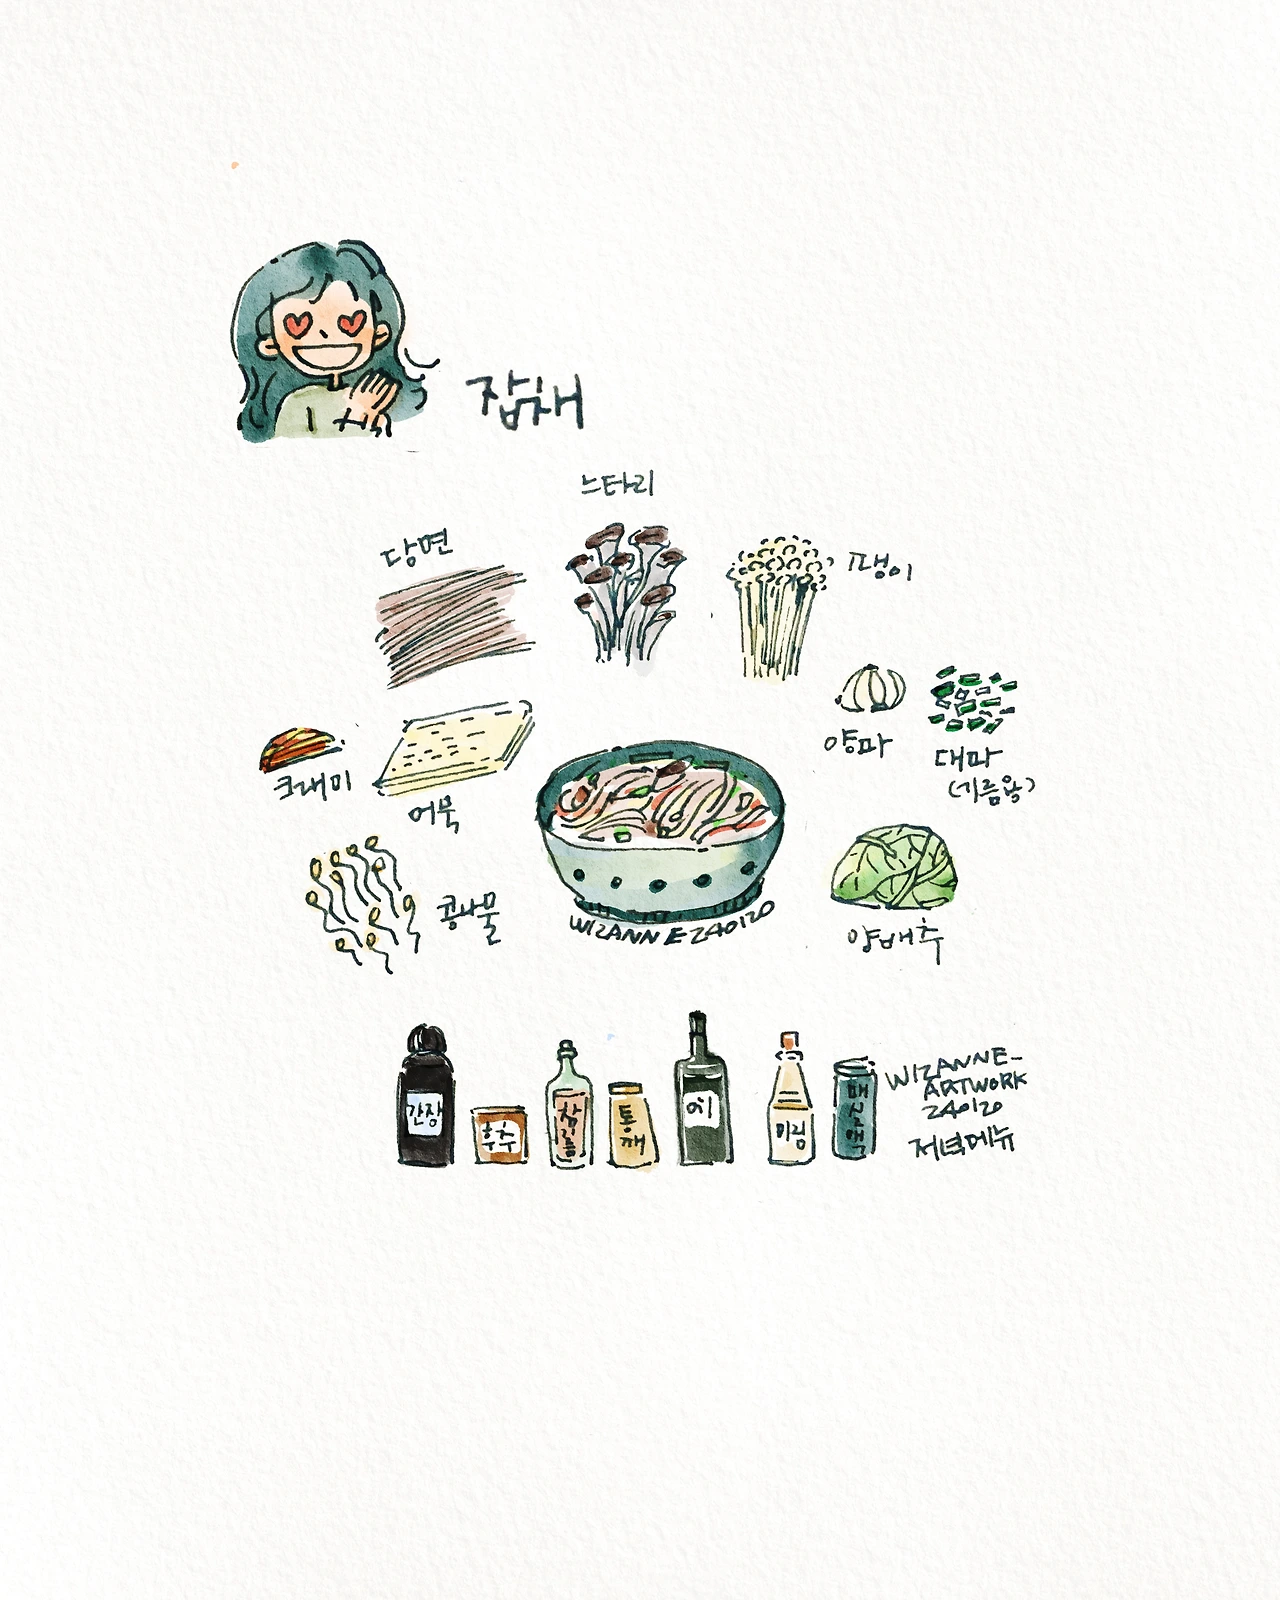 잡채
느타리
당면
팽이
양파
대파
(기름용)
크래미
어묵
콩나물
양배추
WIZANNE240120
간장
후추
참기름
통깨
미림
매실액
WIZANNE-
ARTWORK
240120
저녁메뉴